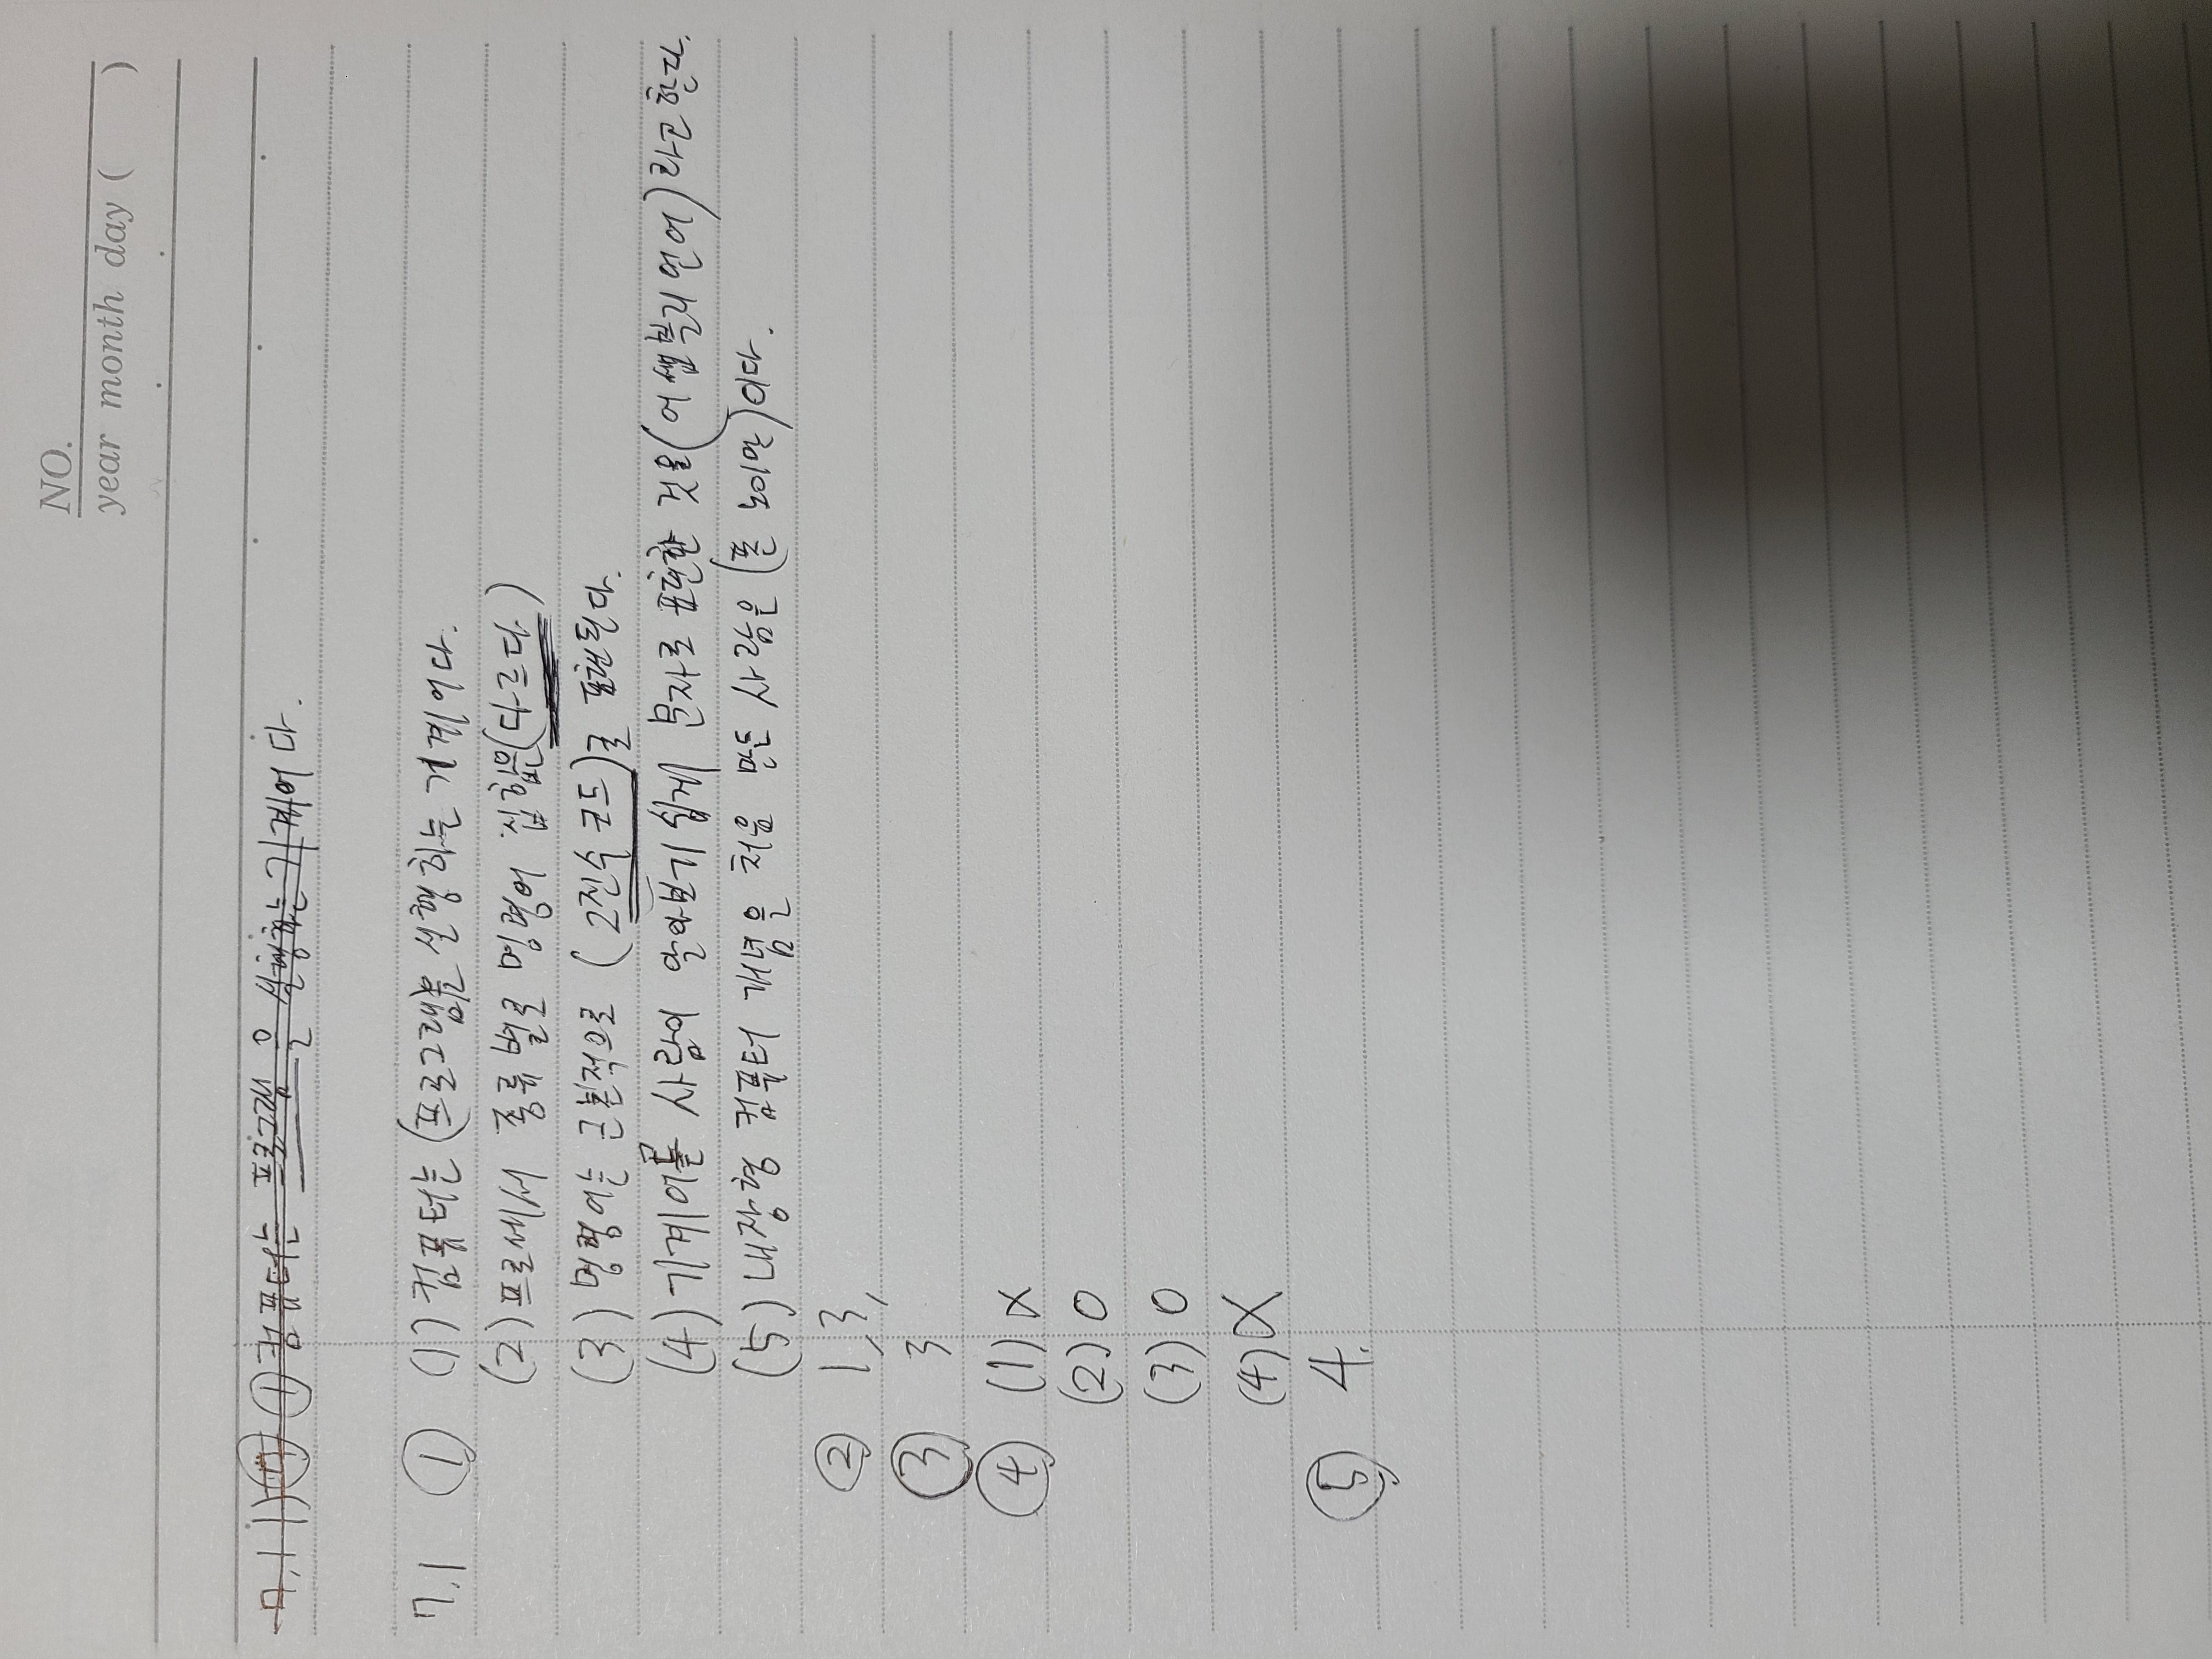 NO.
year month day ( )
7.1 1) ① 컴퓨터는 프로그램을 실행하는 기계어다.
7.1 ① (1) 컴퓨터는 (프로그램)을 실행하는 기계어다.
(2) 프로세서 종류별로 명령어 집합은 (다르다)
(3) 명령어는 근본적으로 (2진수 코드)로 표현된다.
(4) 기계어를 사람이 알아보기 쉽게 문자로 표현한 것을 (어셈블리 언어)라고 한다.
(5) 내장형 컴퓨터 개념을 처음 만든 사람은 (폰 노이만)이다.
② 1, 3,
③ 3
④ (1) X
(2) O
(3) O
(4) X
⑤ 4.